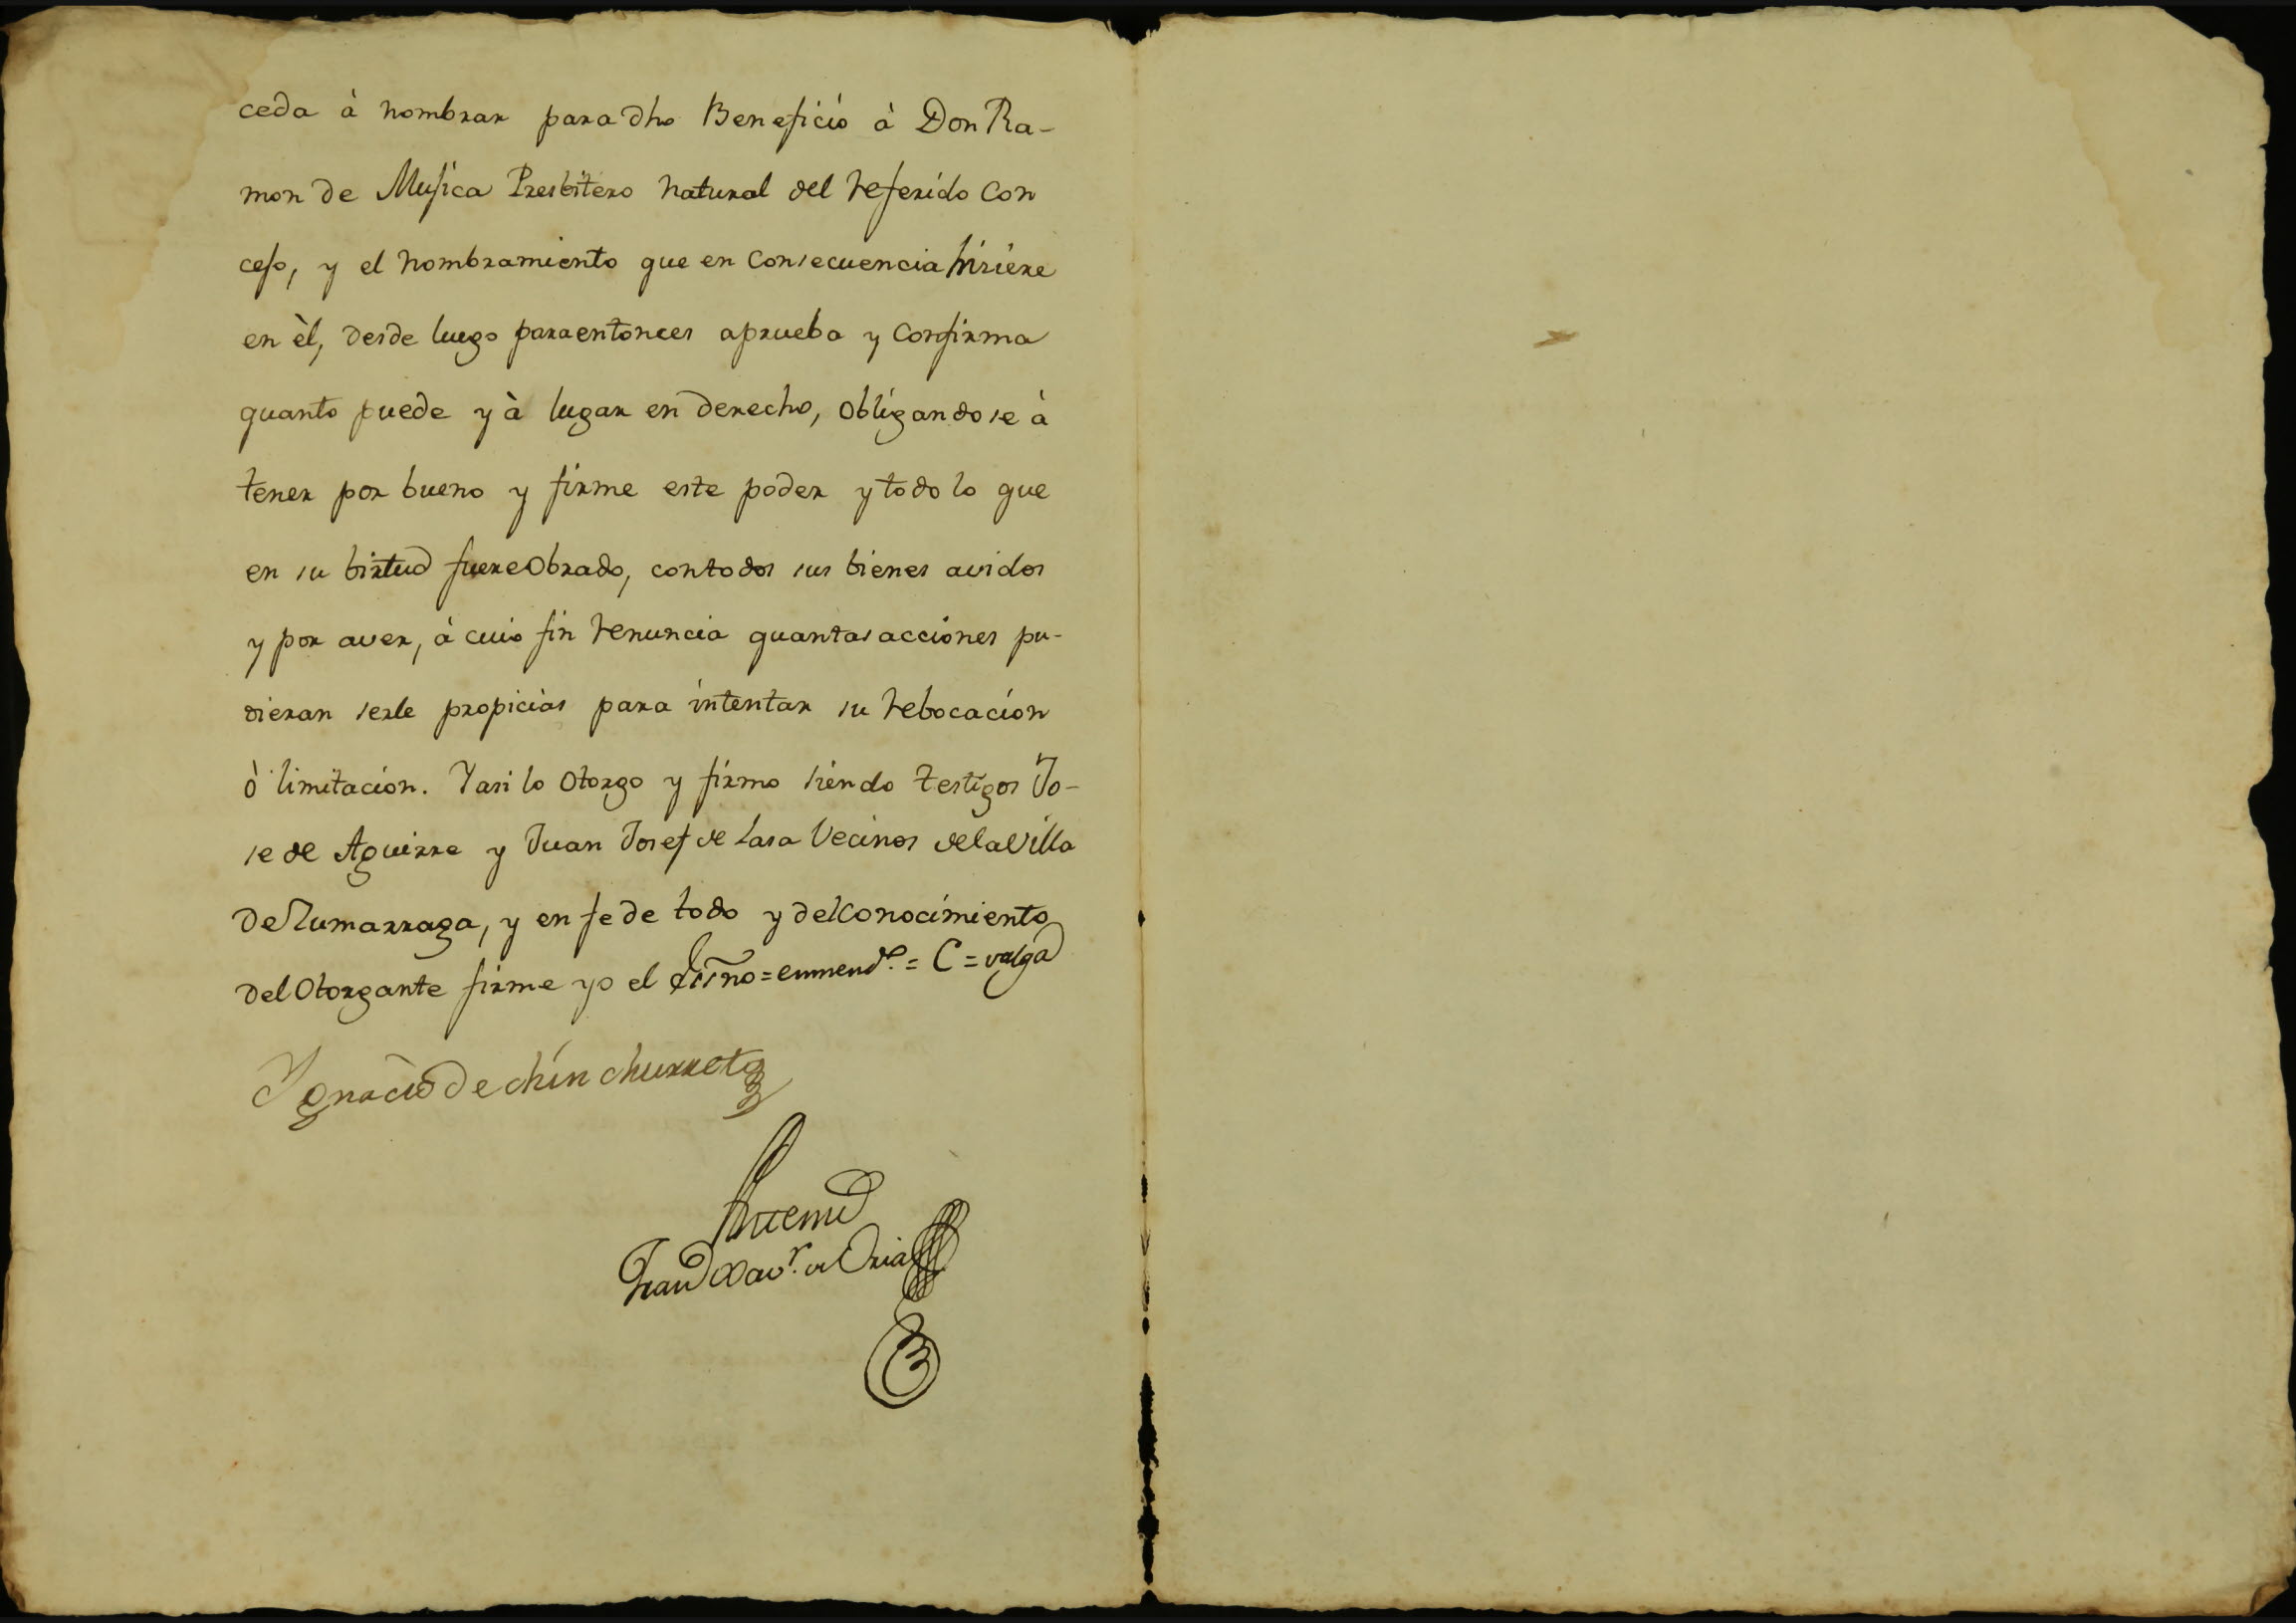 ceda à nombrar para dho Beneficio à Don Ra-
mon de Musica Presbitero natural del referido Con
cejo, y el nombramiento que en Consecuencia hiriere
en èl, desde luego para entonces aprueba y Confirma
quanto puede y à lugar en derecho, obligandose à
tener por bueno y firme este poder y todo lo que
en su birtud fuere Obrado, con todos sus bienes avidos
y por aver, à cuio fin renuncia quantas acciones pu-
dieran serle propicias para intentar su rebocacion
ò limitacion. Y asi lo Otorgo y firmo siendo testigos Jo-
se de Aguirre y Juan Josef de Lasa Vecinos de la Villa
de Zumarraga, y en fe de todo y del conocimiento
del Otorgante firme yo el Essno = enmendo. = C = valga
Ygnacio de chinchurreta
Antemi
Franco Xavr. de Oria